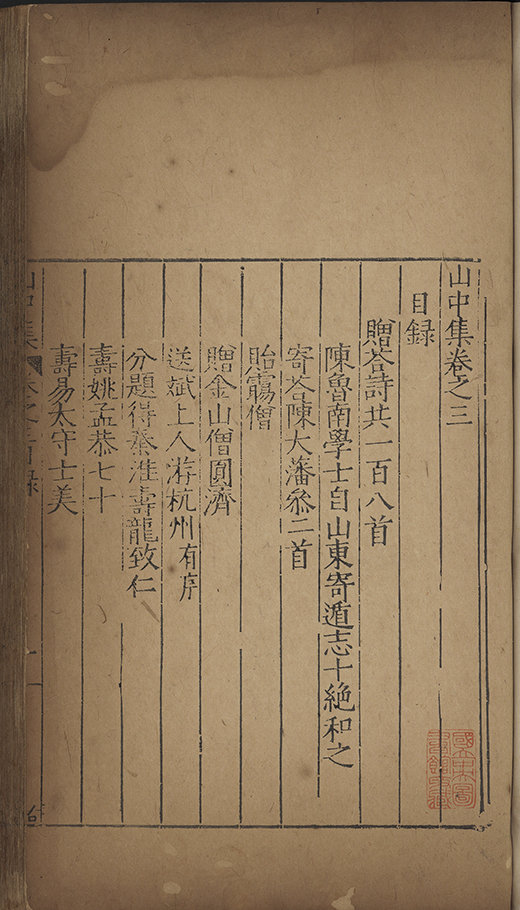 山中集卷之三
目録
贈荅詩共一百八首
陳魯南學士自山東寄遁志十絶和之
寄荅陳大藩叅二首
貽靄僧
贈金山僧圓濟
送斌上人游杭州有序
分題得秦淮壽龍致仁
壽姚孟恭七十
壽易太守士美
山中集 卷之三目録
一
國立中央圖書館收藏